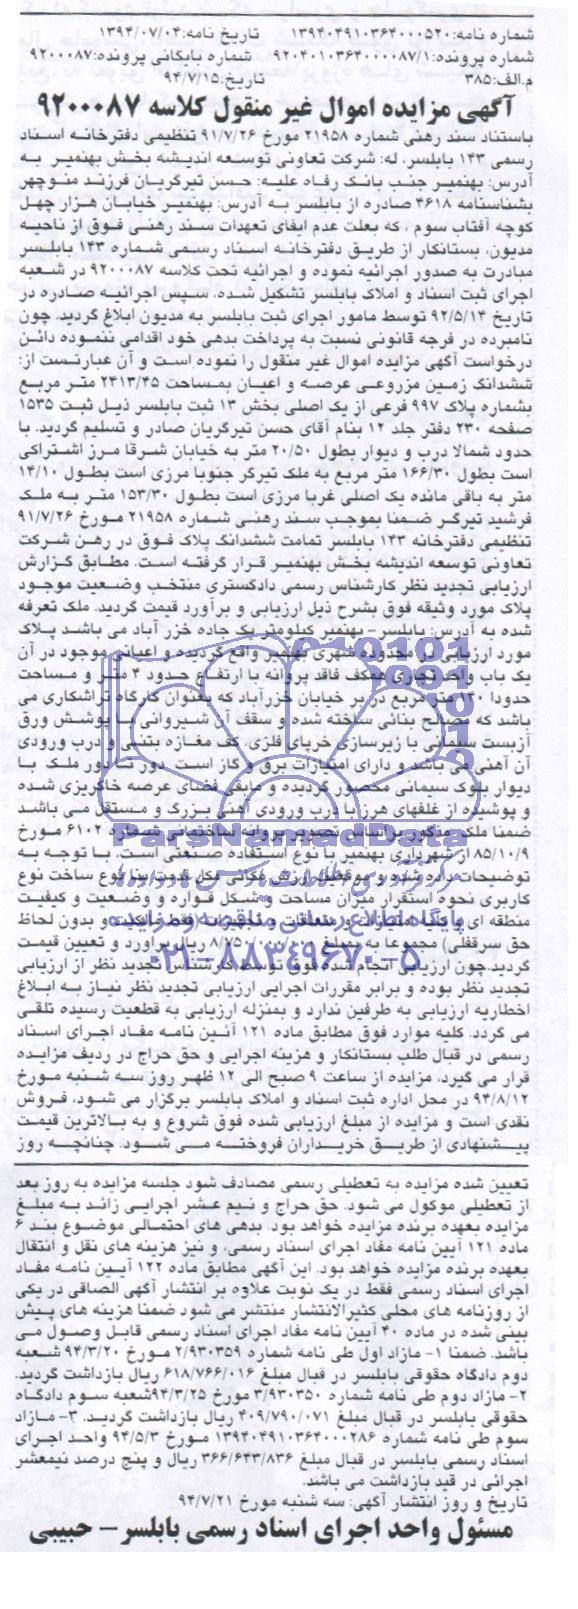 شماره نامه: ۱۳۹۴۰۴۹۱۰۳۶۴۰۰۰۵۲۰ تاریخ نامه: ۱۳۹۴/۰۷/۰۴
شماره پرونده: ۹۲۰۴۰۱۰۳۶۴۰۰۰۰۸۷/۱ شماره بایگانی پرونده: ۹۲۰۰۰۸۷
م.الف: ۳۸۵ تاریخ: ۹۴/۷/۱۵
آگهی مزایده اموال غیر منقول کلاسه ۹۲۰۰۰۸۷
باستناد سند رهنی شماره ۲۱۹۵۸ مورخ ۹۱/۷/۲۶ تنظیمی دفترخانه اسناد
رسمی ۱۴۳ بابلسر، له: شرکت تعاونی توسعه اندیشه بخش بهنمیر به
آدرس: بهنمیر جنب بانک رفاه علیه: حسن تیرگریان فرزند منوچهر
بشناسنامه ۴۶۱۸ صادره از بابلسر به آدرس: بهنمیر خیابان هزار چهل
کوچه آفتاب سوم ، که بعلت عدم ایفای تعهدات سند رهنی فوق از ناحیه
مدیون، بستانکار از طریق دفترخانه اسناد رسمی شماره ۱۴۳ بابلسر
مبادرت به صدور اجرائیه نموده و اجرائیه تحت کلاسه ۹۲۰۰۰۸۷ در شعبه
اجرای ثبت اسناد و املاک بابلسر تشکیل شده، سپس اجرائیه صادره در
تاریخ ۹۲/۵/۱۴ توسط مامور اجرای ثبت بابلسر به مدیون ابلاغ گردید. چون
نامبرده در فرجه قانونی نسبت به پرداخت بدهی خود اقدامی ننموده دائن
درخواست آگهی مزایده اموال غیر منقول را نموده است و آن عبارتست از:
ششدانگ زمین مزروعی عرصه و اعیان بمساحت ۲۴۱۳/۴۵ متر مربع
بشماره پلاک ۹۹۷ فرعی از یک اصلی بخش ۱۳ ثبت بابلسر ذیل ثبت ۱۵۳۵
صفحه ۲۳۰ دفتر جلد ۱۲ بنام آقای حسن تیرگریان صادر و تسلیم گردید. با
حدود شمالا درب و دیوار بطول ۲۰/۵۰ متر به خیابان شرقا مرز اشتراکی
است بطول ۱۶۶/۳۰ متر مربع به ملک تیرگر جنوبا مرزی است بطول ۱۴/۱۰
متر به باقی مانده یک اصلی غربا مرزی است بطول ۱۵۳/۳۰ متر به ملک
فرشید تیرگر ضمنا بموجب سند رهنی شماره ۲۱۹۵۸ مورخ ۹۱/۷/۲۶
تنظیمی دفترخانه ۱۴۳ بابلسر تمامت ششدانگ پلاک فوق در رهن شرکت
تعاونی توسعه اندیشه بخش بهنمیر قرار گرفته است. مطابق گزارش
ارزیابی تجدید نظر کارشناس رسمی دادگستری منتخب وضعیت موجود
پلاک مورد وثیقه فوق بشرح ذیل ارزیابی و برآورد قیمت گردید. ملک تعرفه
شده به آدرس: بابلسر- بهنمیر کیلومتر یک جاده خزر آباد می باشد پلاک
مورد ارزیابی در محدوده شهری بهنمیر واقع گردیده و اعیانی موجود در آن
یک باب واحد تجاری همکف فاقد پروانه با ارتفاع حدود ۴ متر و مساحت
حدودا ۱۴۰ متر مربع در بر خیابان خزرآباد که بعنوان کارگاه تراشکاری می
باشد که مصالح بنائی ساخته شده و سقف آن شیروانی با پوشش ورق
آزبست سیمانی با زیرسازی خرپای فلزی، کف مغازه بتنی و درب ورودی
آن آهنی می باشد و دارای امتیازات برق و گاز است. دور تا دور ملک با
دیوار بلوک سیمانی محصور گردیده و مابقی فضای عرصه خاکریزی شده
و پوشیده از علفهای هرز با درب ورودی آهنی بزرگ و مستقل می باشد
ضمنا ملک مذکور براساس تصویر پروانه ساختمانی شماره ۶۱۰۲ مورخ
۸۵/۱۰/۹ از شهرداری بهنمیر با نوع استفاده صنعتی است. با توجه به
توضیحات داده شده و موقعیت ارزش مکانی قدمت بنا نوع ساخت نوع
کاربری نحوه استقرار میزان مساحت و شکل قواره و وضعیت و کیفیت
منطقه ای و کلیه امتیازات و متعلقات و تجهیزات (فقط مالکیت و بدون لحاظ
حق سرقفلی) مجموعا به مبلغ ریال برآورد و تعیین قیمت
گردید. چون ارزیابی انجام شده فوق توسط کارشناس تجدید نظر از ارزیابی
تجدید نظر بوده و برابر مقررات اجرایی ارزیابی تجدید نظر نیاز به ابلاغ
اخطاریه ارزیابی به طرفین ندارد و بمنزله ارزیابی به قطعیت رسیده تلقی
می گردد. کلیه موارد فوق مطابق ماده ۱۲۱ آئین نامه مفاد اجرای اسناد
رسمی در قبال طلب بستانکار و هزینه اجرایی و حق حراج در ردیف مزایده
قرار می گیرد، مزایده از ساعت ۹ صبح الی ۱۲ ظهر روز سه شنبه مورخ
۹۴/۸/۱۲ در محل اداره ثبت اسناد و املاک بابلسر برگزار می شود، فروش
نقدی است و مزایده از مبلغ ارزیابی شده فوق شروع و به بالاترین قیمت
پیشنهادی از طریق خریداران فروخته می شود، چنانچه روز
تعیین شده مزایده به تعطیلی رسمی مصادف شود جلسه مزایده به روز بعد
از تعطیلی موکول می شود. حق حراج و نیم عشر اجرایی زائد به مبلغ
مزایده بعهده برنده مزایده خواهد بود. بدهی های احتمالی موضوع بند ۶
ماده ۱۲۱ آیین نامه مفاد اجرای اسناد رسمی، و نیز هزینه های نقل و انتقال
بعهده برنده مزایده خواهد بود. این آگهی مطابق ماده ۱۲۲ آیین نامه مفاد
اجرای اسناد رسمی فقط در یک نوبت علاوه بر انتشار آگهی الصاقی در یکی
از روزنامه های محلی کثیرالانتشار منتشر می شود ضمنا هزینه های پیش
بینی شده در ماده ۴۰ آیین نامه مفاد اجرای اسناد رسمی قابل وصول می
باشد. ضمنا ۱- مازاد اول طی نامه شماره ۲/۹۳۰۳۵۹ مورخ ۹۴/۳/۲۰ شعبه
دوم دادگاه حقوقی بابلسر در قبال مبلغ ۶۱۸/۷۶۶/۰۱۶ ریال بازداشت گردید.
۲- مازاد دوم طی نامه شماره ۳/۹۳۰۳۵۰ مورخ ۹۴/۳/۲۵ شعبه سوم دادگاه
حقوقی بابلسر در قبال مبلغ ۴۰۹/۷۹۰/۰۷۱ ریال بازداشت گردید. ۳- مازاد
سوم طی نامه شماره ۱۳۹۴۰۴۹۱۰۳۶۴۰۰۰۲۸۶ مورخ ۹۴/۵/۳ واحد اجرای
اسناد رسمی بابلسر در قبال مبلغ ۳۶۶/۶۴۳/۸۳۶ ریال و پنج درصد نیمعشر
اجرائی در قید بازداشت می باشد.
تاریخ و روز انتشار آگهی: سه شنبه مورخ ۹۴/۷/۲۱
مسئول واحد اجرای اسناد رسمی بابلسر – حبیبی
ParsNamadData
پایگاه اطلاع رسانی مناقصه و مزایده
۰۲۱-۸۸۳۴۹۶۷۰-۵